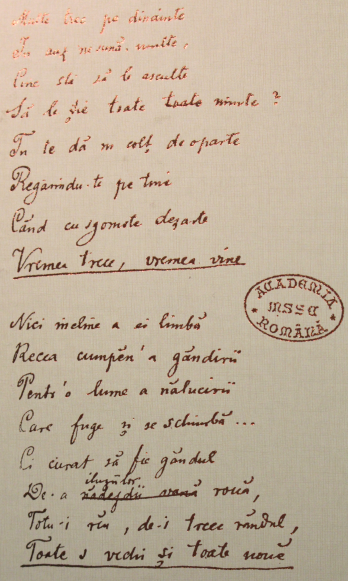 Multe trec pe dinainte
In auz ne sună multe,
Cine stă să le asculte
Să le ție toate toate minte?
Tu te dă în colț deoparte
Regăsindu-te pe tine
Când cu sgomote deșarte
Vremea trece, vremea vine
ACADEMIA
MSSE
ROMÂNĂ
Nici încline a ei limbă
Recea cumpăn'a gândirii
Pentr'o lume a nălucirii
Care fuge și se schimbă...
Ci curat să fie gândul
iluziilor
De-a nădejdii vană rouă,
Totu-i rău, de-i trece rândul,
Toate-s vechi și toate nouă